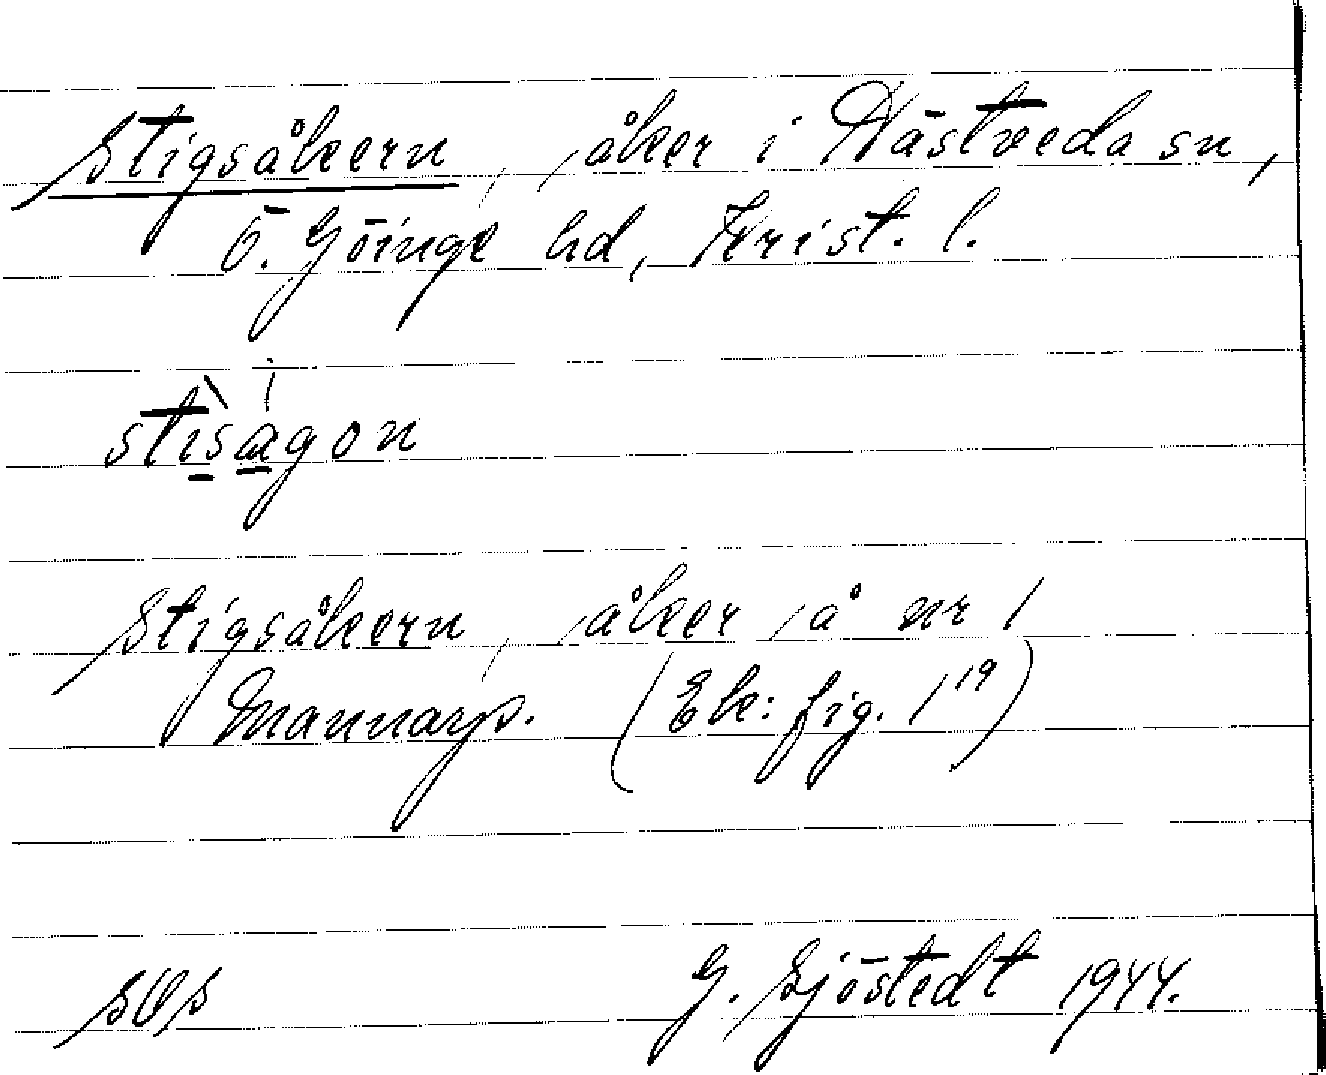 Stigsåkern, åker i Nästveda sn,
Ö. Göinge hd, Krist. l.
stisagon
Stigsåkern, åker å nr 1
Mannarp. (Ek: fig. 1¹⁹)
SOS G. Sjöstedt 1944.